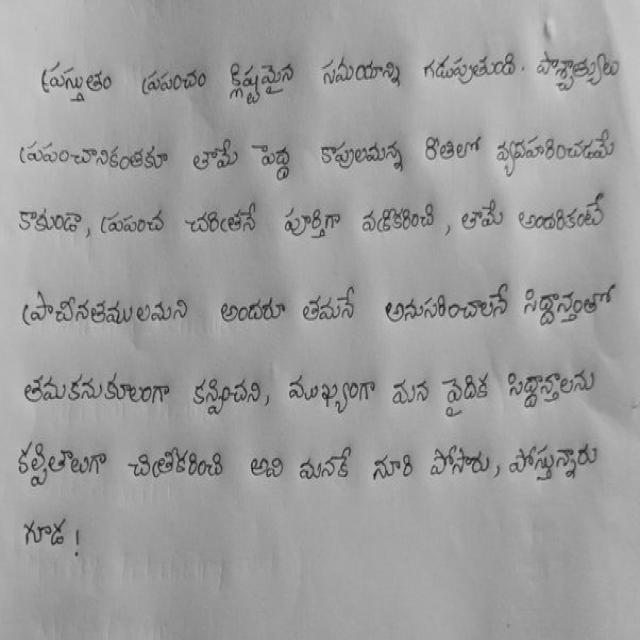 ప్రస్తుతం ప్రపంచం క్లిష్టమైన సమయాన్ని గడుపుతుంది. పాశ్చాత్యులు
ప్రపంచానికంతకూ తామే పెద్ద కాపులమన్న రీతిలో వ్యవహరించడమే
కాకుండా, ప్రపంచ చరిత్రనే పూర్తిగా వక్రీకరించి, తామే అందరికంటే
ప్రాచీనతములమని అందరూ తమనే అనుసరించాలనే సిద్ధాన్తంతో
తమకనుకూలంగా కన్పించని, ముఖ్యంగా మన వైదిక సిద్ధాన్తాలను
కల్పితాలుగా చిత్రీకరించి అవి మనకే నూరి పోసారు, పోస్తున్నారు
గూడ!